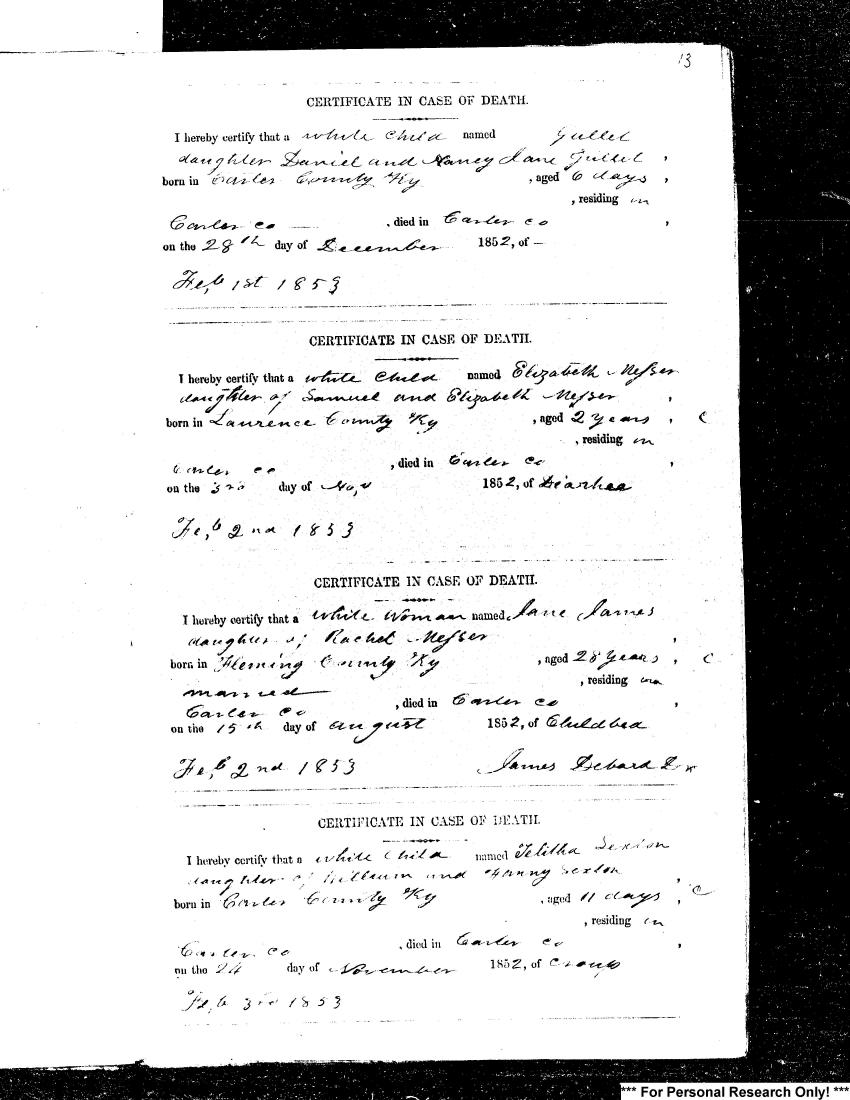 13
CERTIFICATE IN CASE OF DEATH.
I hereby certify that a white Child named Gullet
daughter Daniel and Nancy Jane Gullet ,
born in Carter County Ky , aged 6 days ,
, residing in
Carter co — , died in Carter co ,
on the 28th day of December 1852, of —
Feb 1st 1853
CERTIFICATE IN CASE OF DEATH.
I hereby certify that a white Child named Elizabeth Messer
daughter of Samuel and Elizabeth Messer ,
born in Laurence County Ky , aged 2 years , C
, residing in
Carter co , died in Carter co ,
on the 3rd day of Nov 1852, of Diarhea
Feb 2nd 1853
CERTIFICATE IN CASE OF DEATH.
I hereby certify that a white Woman named Jane James
daughter of Rachel Messer ,
born in Fleming County Ky , aged 28 years , C
married , residing in
Carter co , died in Carter co ,
on the 15th day of august 1852, of Childbed
Feb 2nd 1853 James Debard Dr
CERTIFICATE IN CASE OF DEATH.
I hereby certify that a white Child named Telitha Sexton
daughter of and Sexton ,
born in Carter County Ky , aged 11 days , C
, residing in
Carter co , died in Carter co ,
on the 24 day of November 1852, of Croup
Feb 3rd 1853
*** For Personal Research Only! ***